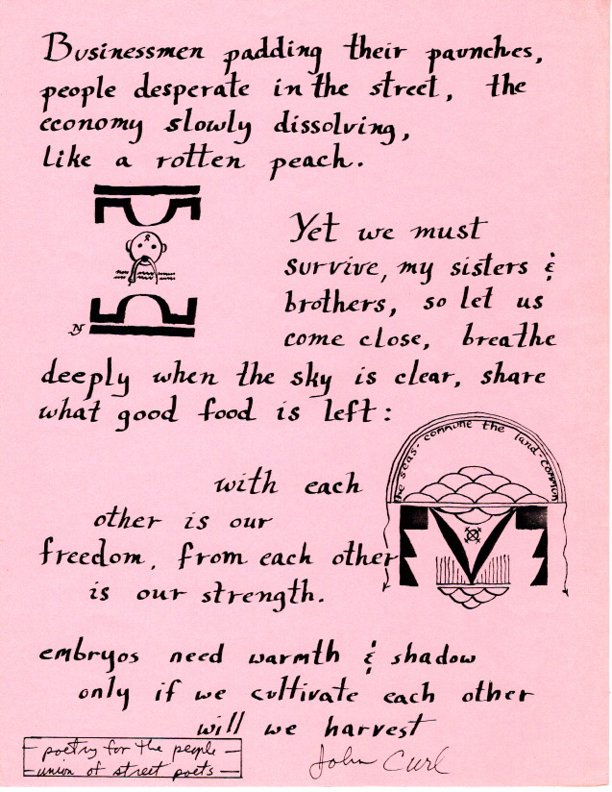 Businessmen padding their paunches,
people desperate in the street, the
economy slowly dissolving,
like a rotten peach.
Yet we must
survive, my sisters &
brothers, so let us
come close, breathe
deeply when the sky is clear, share
what good food is left:
the seas · commune the land · common
with each
other is our
freedom, from each other
is our strength.
embryos need warmth & shadow
only if we cultivate each other
will we harvest
poetry for the people
union of street poets
John Curl